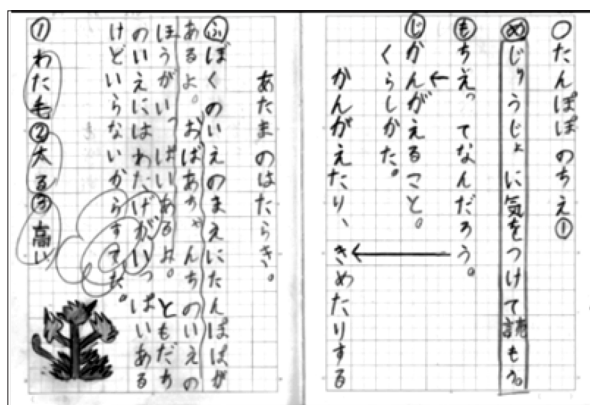 ○たんぽぽのちえ①
め じゅうじょに気をつけて読もう。
も ちえってなんだろう。
じ かんがえること。
くらしかた。
かんがえたり、きめたりする
あたまのはたらき。
ふ ぼくのいえのまえにたんぽぽが
あるよ。おばあちゃんちのいえの
ほうがいっぱいあるよ。ともだち
のいえにはわたげがいっぱいある
けどいらないからすてた。
①わた毛②太る③高い